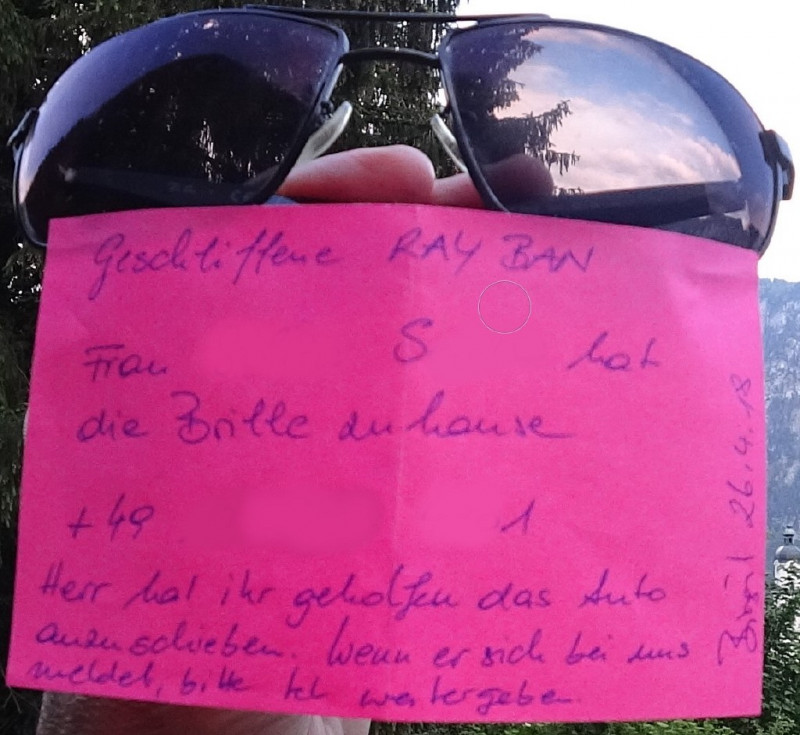 Geschliffene RAY BAN
Frau S hat
die Brille zuhause
+49 1
Herr hat ihr geholfen das Auto
anzuschieben. Wenn er sich bei uns
meldet, bitte Tel weitergeben.
26.4.18